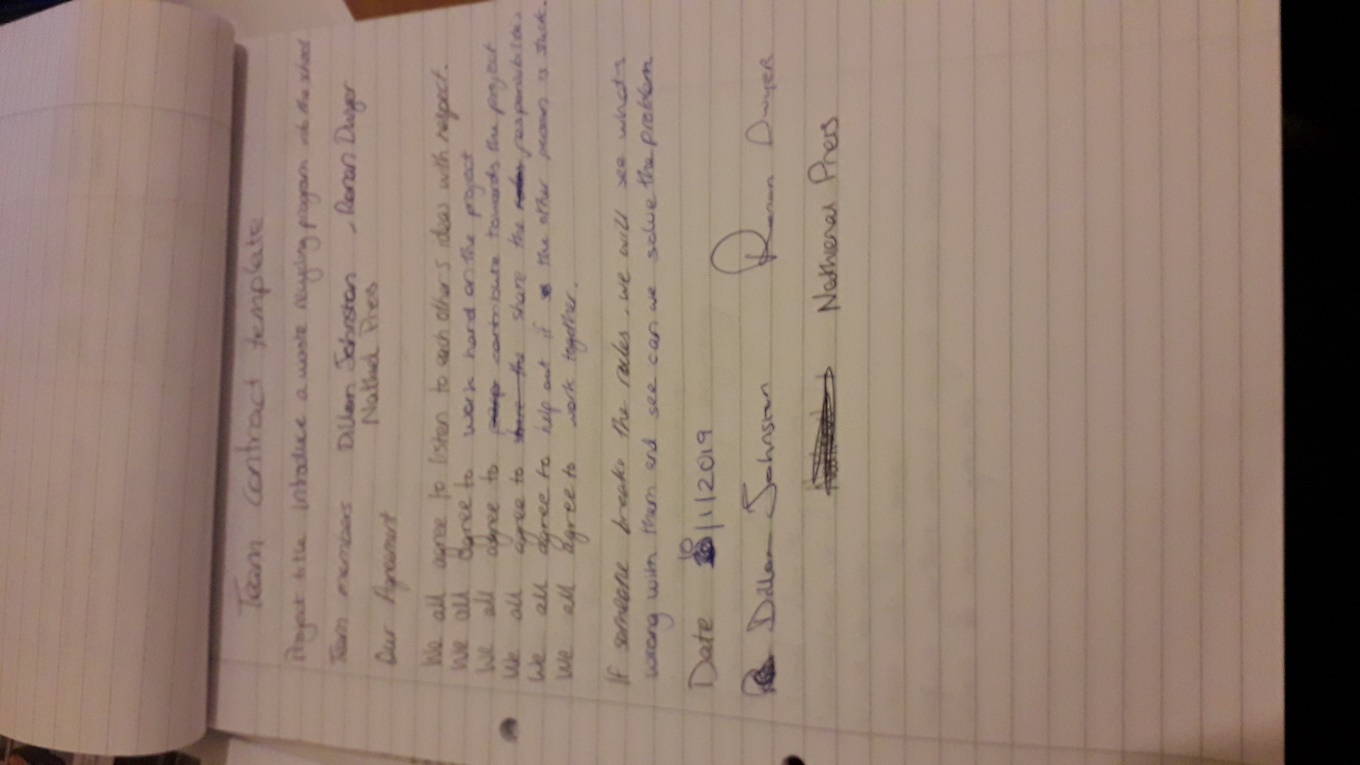 Team contract template
Project title introduce a waste recycling program in the school
Team members Dillon Johnston, Ronan Dwyer
Nathed Pres
Our Agreement
We all agree to listen to each other's ideas with respect.
We all agree to work hard on the project
We all agree to contribute towards the project
We all agree to share the responsibilities
We all agree to help out if the other person is stuck.
We all agree to work together.
If someone breaks the rules, we will see whats
wrong with them and see can we solve the problem
Date 10/1/2019
Dillon Johnston Ronan Dwyer
Natheneal Pres